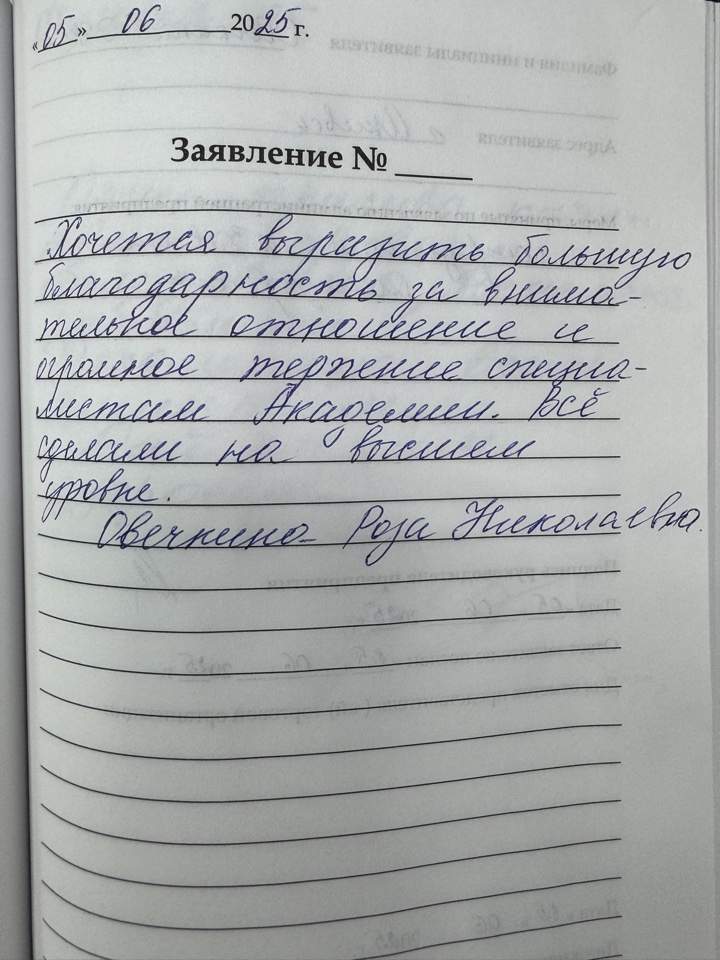 «05» 06 2025 г.
Заявление № ____
Хочется выразить большую
благодарность за внима-
тельное отношение и
огромное терпение специа-
листам Академии. Всё
сделали на высшем
уровне.
Овечкина Роза Николаевна.